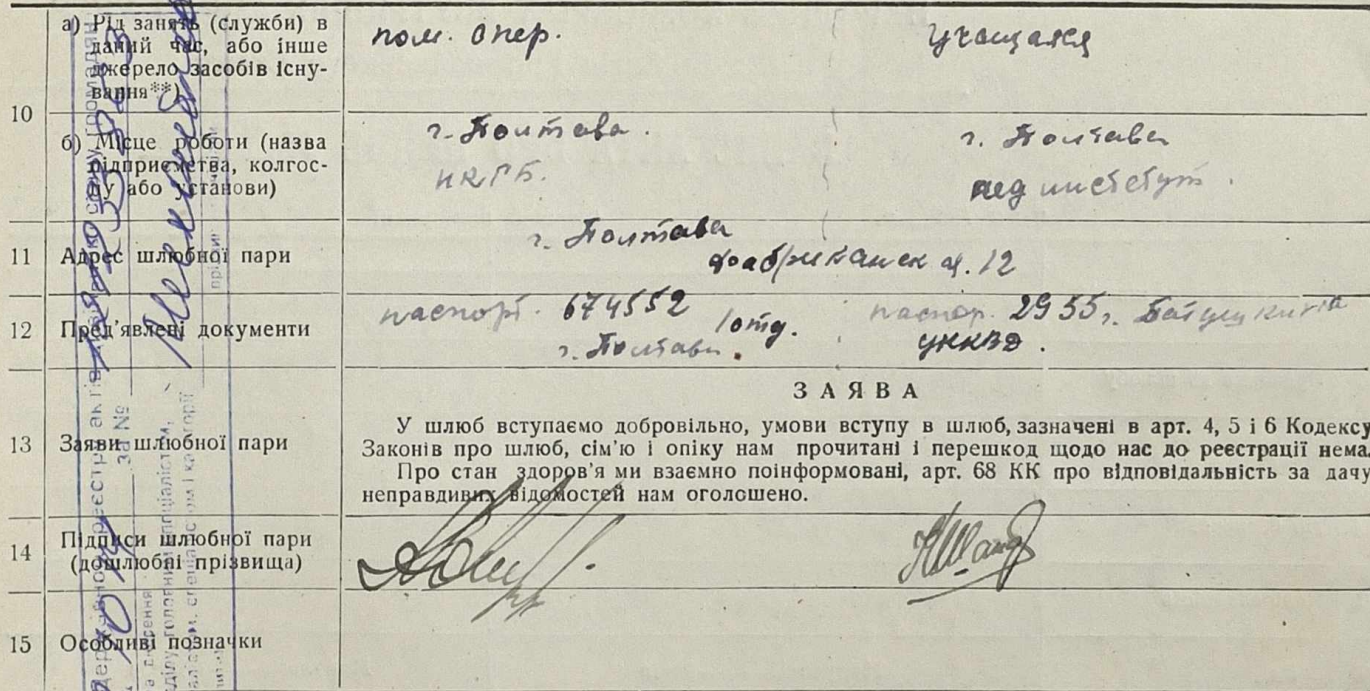 10
а) Рід занять (служби) в
даний час, або інше
джерело засобів існу-
вання**)
пом. опер.
учащаяся
б) Місце роботи (назва
підприємства, колгос-
пу або установи)
г. Полтава.
НКГБ.
г. Полтава
пединститут.
11
Адрес шлюбної пари
г. Полтава
12
12
Пред'явлені документи
паспорт. 674552
1 отд.
г. Полтава.
паспор. 2955 г.
УНКВД.
13
Заяви шлюбної пари
ЗАЯВА
У шлюб вступаємо добровільно, умови вступу в шлюб, зазначені в арт. 4, 5 і 6 Кодексу
Законів про шлюб, сім'ю і опіку нам прочитані і перешкод щодо нас до реєстрації нема.
Про стан здоров'я ми взаємно поінформовані, арт. 68 КК про відповідальність за дачу
неправдивих відомостей нам оголошено.
14
Підписи шлюбної пари
(дошлюбні прізвища)
15
Особливі позначки
за №